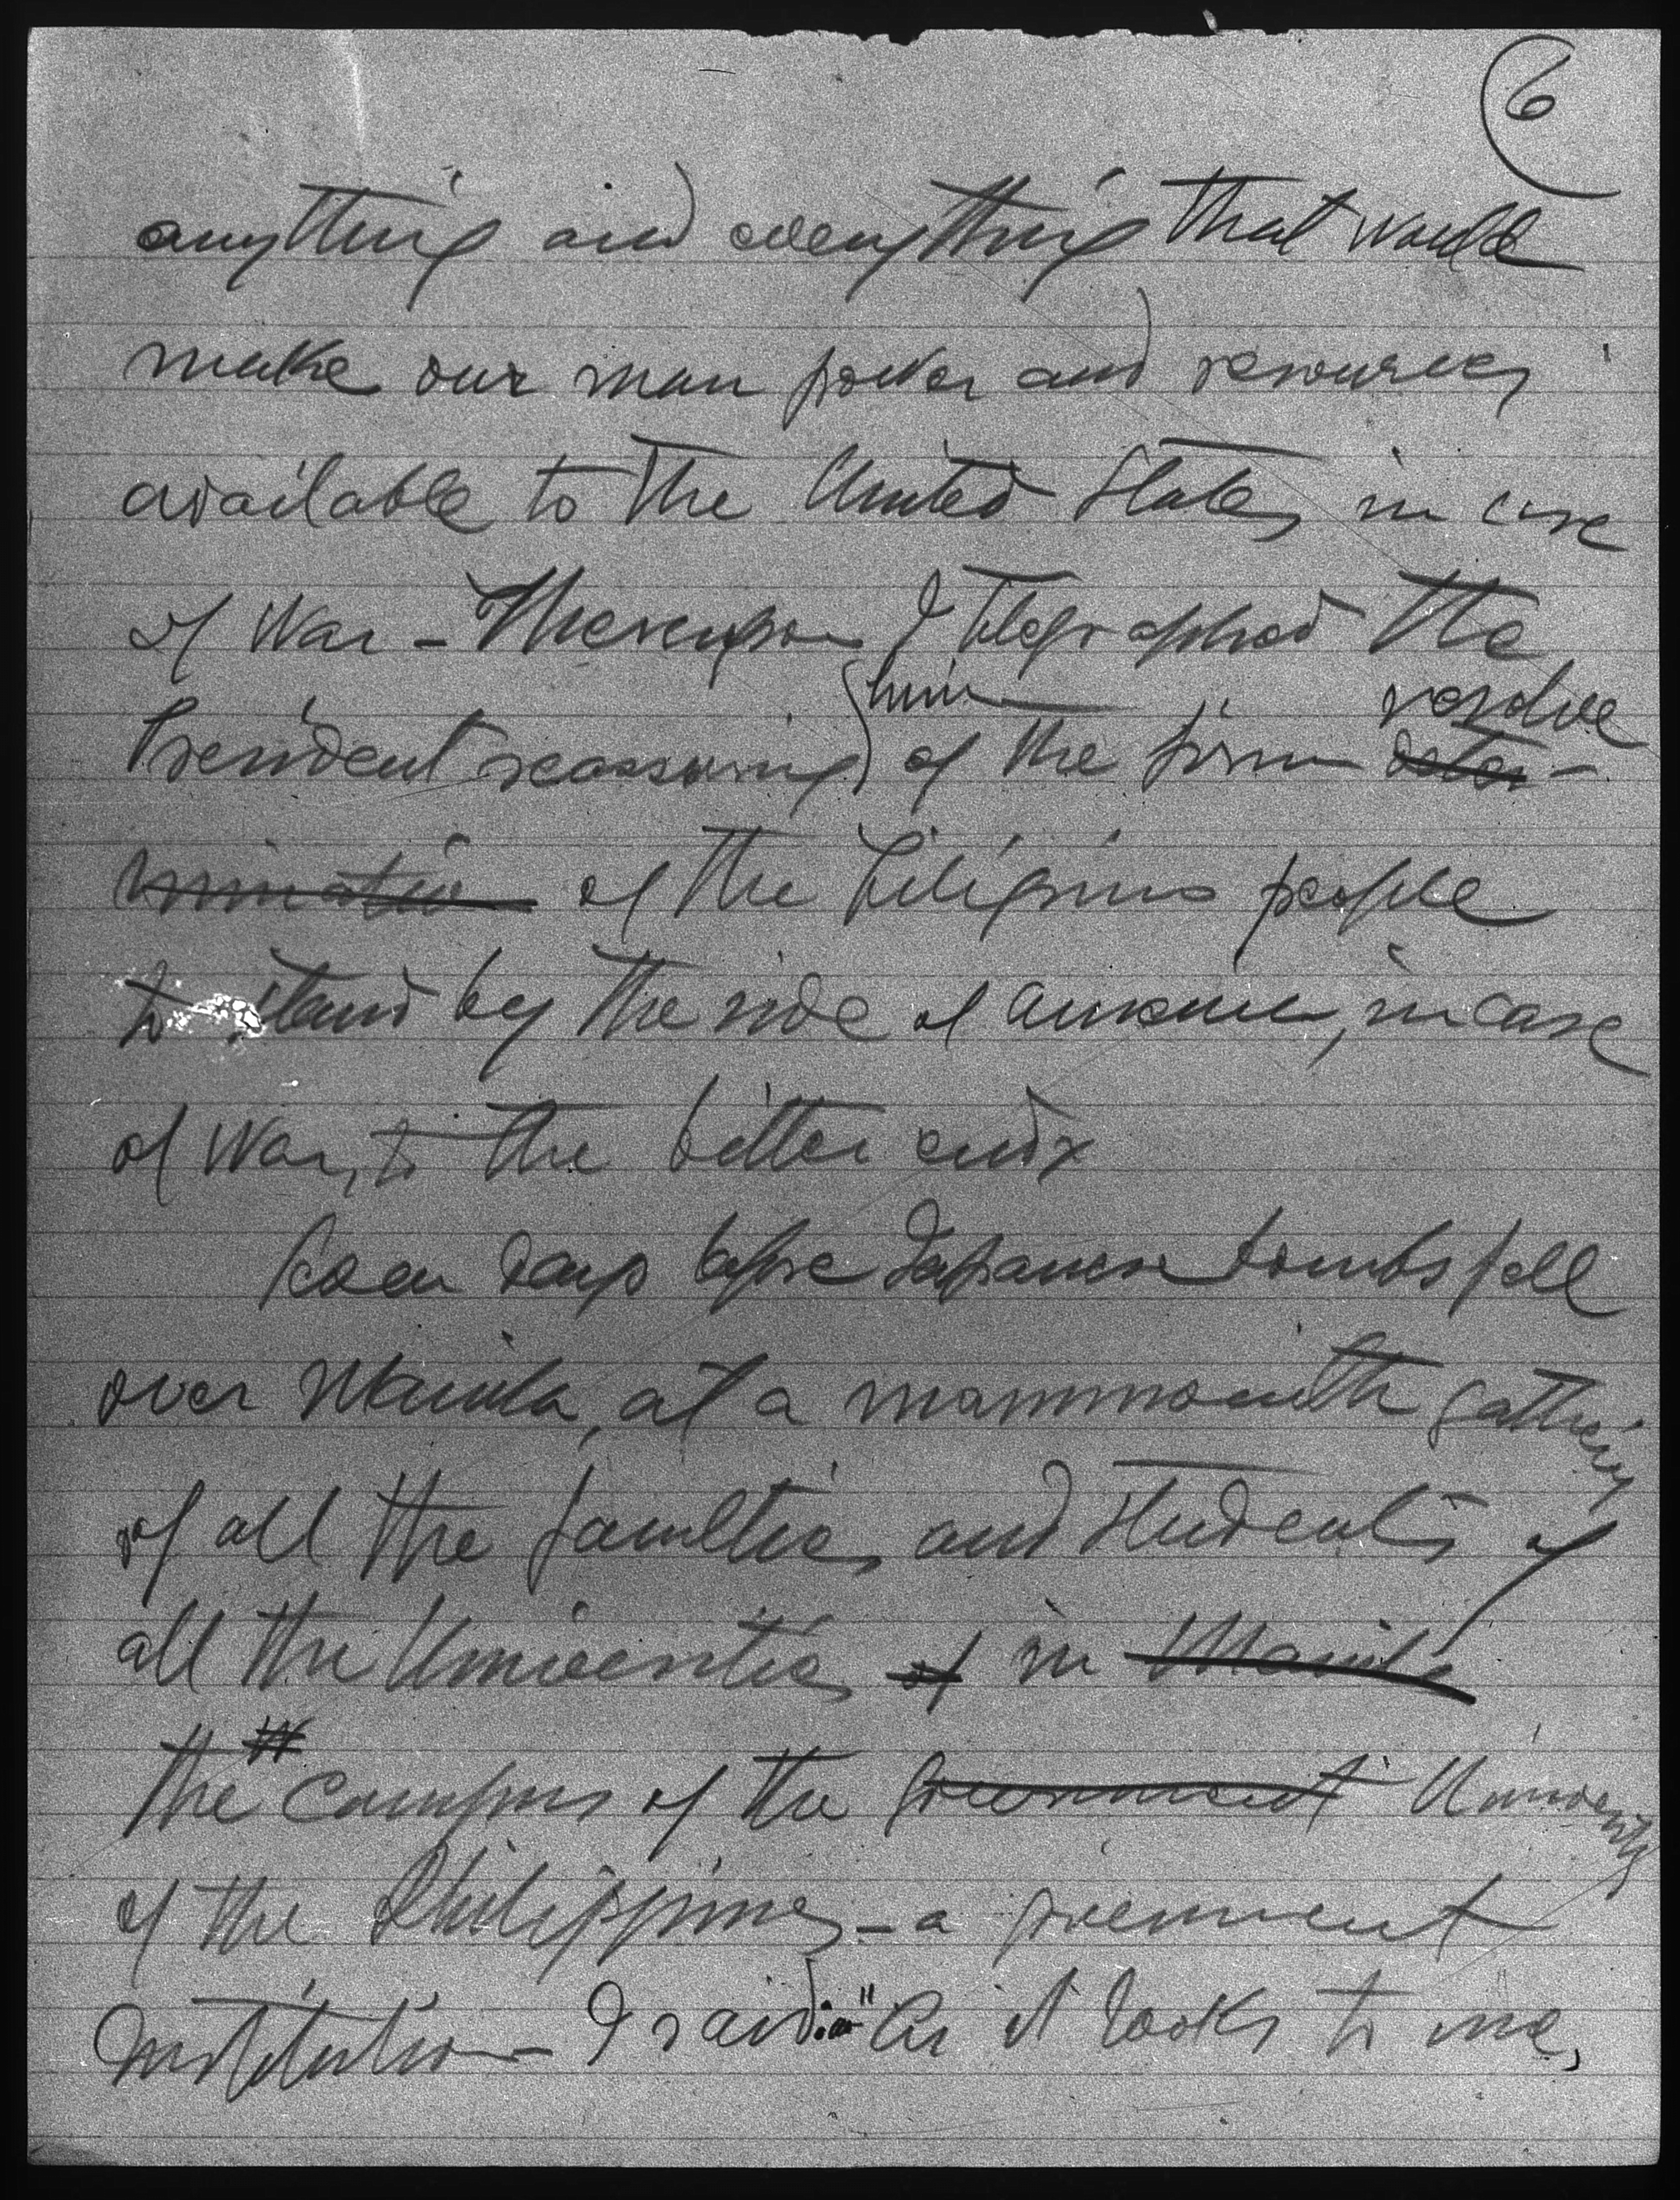 6
anything and everything that would
make our man power and resources
available to the United States in case
of war - Thereupon I telegraphed the
President reassuring him of the firm deter- resolve
mination of the Filipino people
to stand by the side of America, in case
of war, to the bitter end.
days before Japanese bombs fell
over Manila, at a mammouth gathering
of all the faculties and students of
all the Universities of in Manila
the campus of the Government University
of the Philippines - a government
Institution - I said: "As it looks to me,